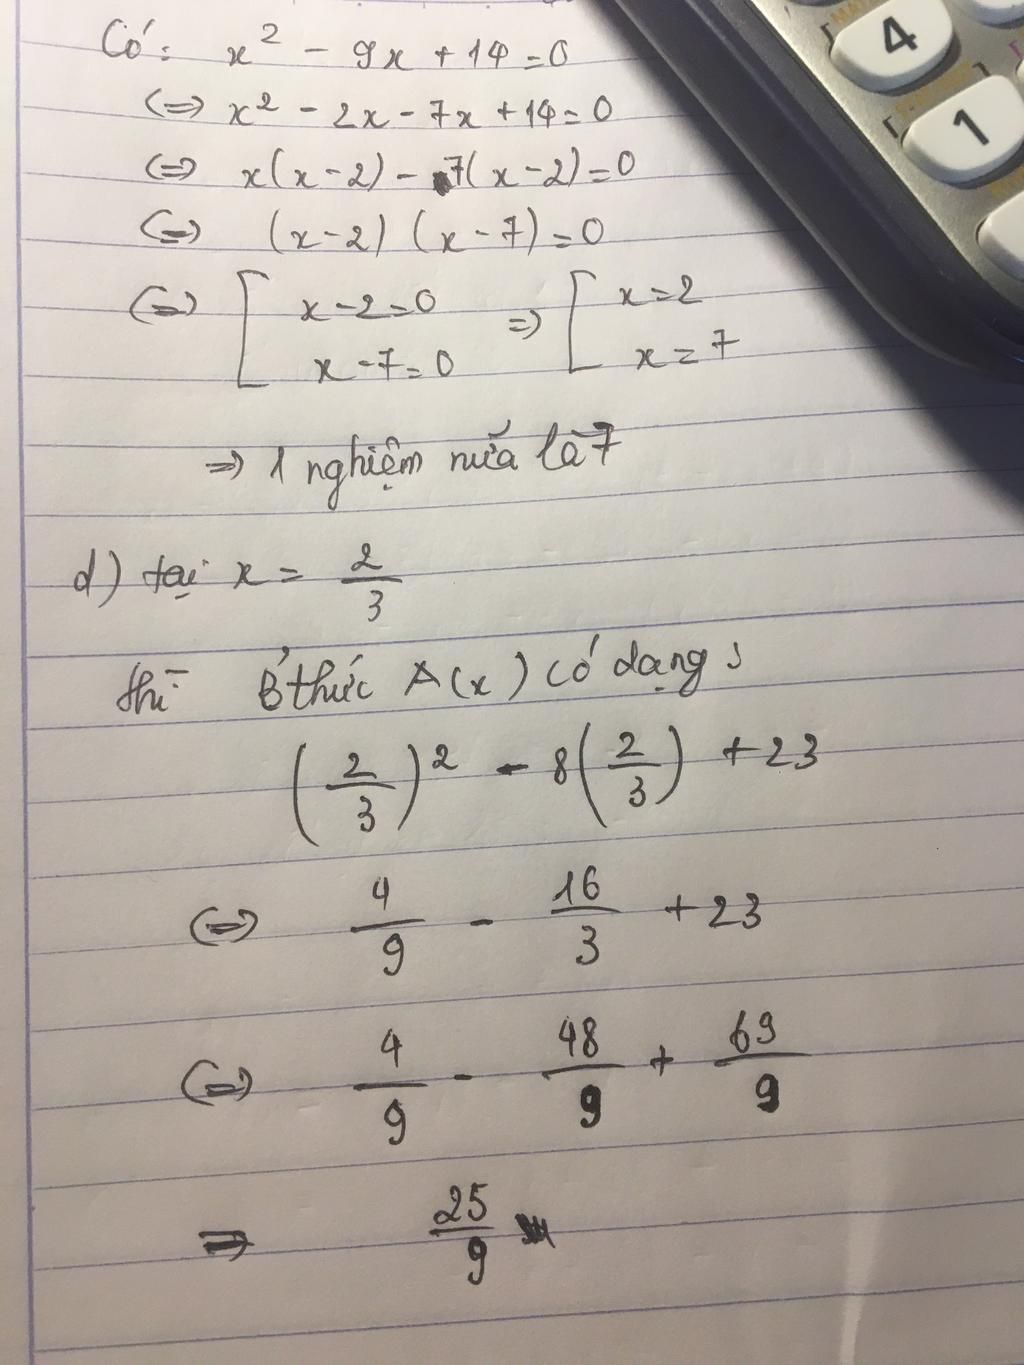 Có: x² - 9x + 14 = 0
(=) x² - 2x - 7x + 14 = 0
(=) x(x-2) - 7(x-2) = 0
(=) (x-2) (x-7) = 0
(=) [ x-2=0 => [ x=2
x-7=0 x=7
=> 1 nghiệm nữa là 7
d) tại x = 2/3
thì B thức A(x) có dạng:
(2/3)² - 8(2/3) + 23
(=) 4/9 - 16/3 + 23
(=) 4/9 - 48/9 + 69/9
= 25/9
4
1